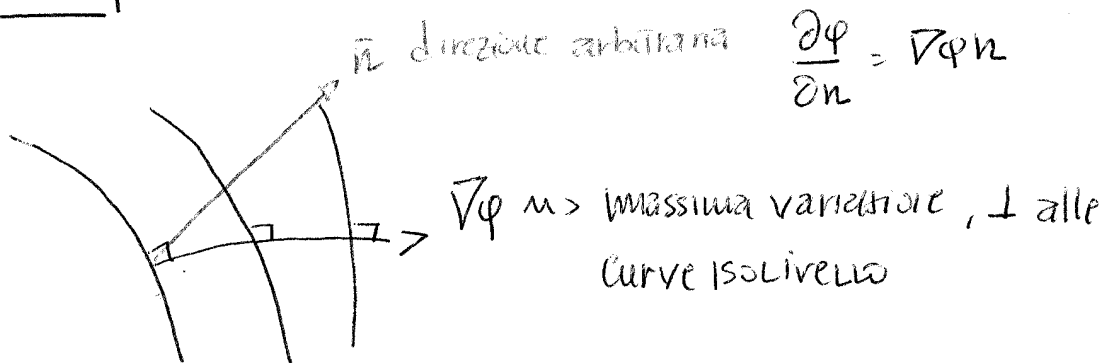 n̄ direzione arbitraria ∂φ/∂n = ∇φ n
∇φ ~> massima variazione, ⊥ alle
curve isolivello